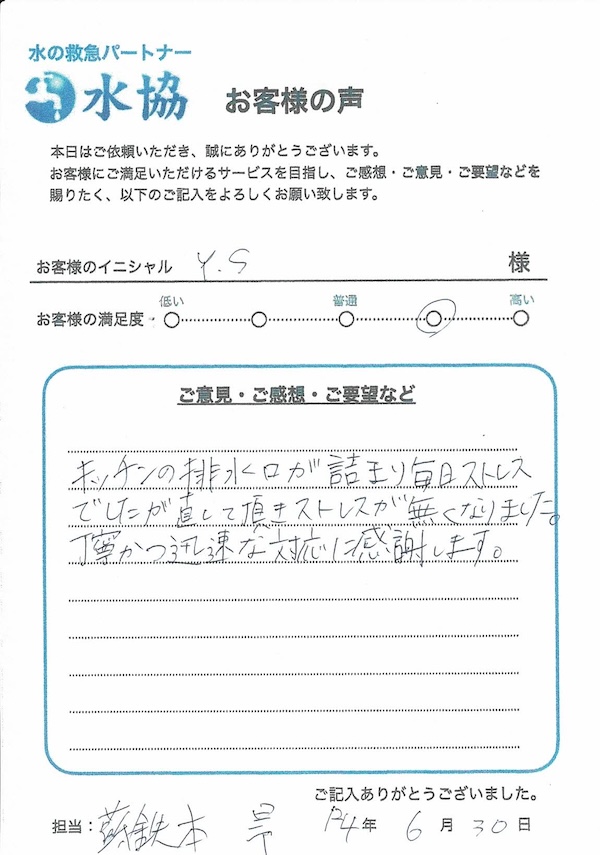 水の救急パートナー
水協 お客様の声
本日はご依頼いただき、誠にありがとうございます。
お客様にご満足いただけるサービスを目指し、ご感想・ご意見・ご要望などを
賜りたく、以下のご記入をよろしくお願い致します。
お客様のイニシャル Y.S 様
低い 普通 高い
お客様の満足度
ご意見・ご感想・ご要望など
キッチンの排水口が詰まり毎日ストレス
でしたが直して頂きストレスが無くなりました。
丁寧かつ迅速な対応に感謝します。
ご記入ありがとうございました。
担当: 本 R4年 6月30日